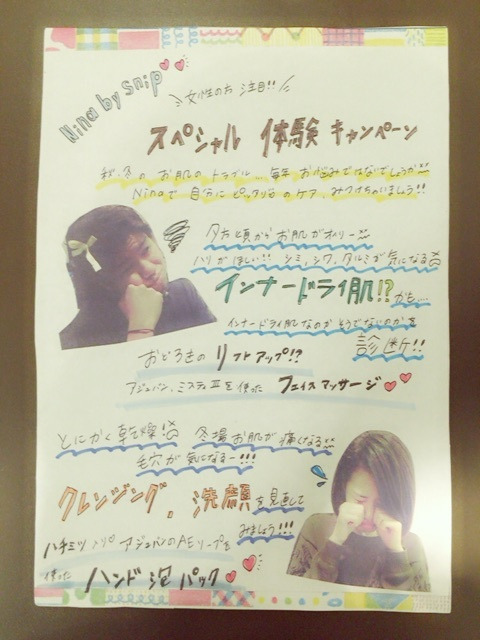 Nina by snip
女性のお注目!!
スペシャル 体験 キャンペーン
秋、冬の お肌の トラブル... 毎年 お悩みではないでしょうか
Ninaで 自分に ピッタリな のケア、みつけちゃいましょう!!
夕方頃からお肌がオイリー
ハリがほしい!! シミ、シワ、タルミが気になる
インナードライ肌!? かも...
インナードライ肌なのかそうでないのかを
診断!!
おどろきの リフトアップ!?
アジュバン、ミスティⅡを使った フェイスマッサージ
とにかく乾燥! 冬場お肌が痛くなる
毛穴が気になるー!!!
クレンジング、洗顔を見直して
みましょう!!!
ハチミツ入り アジュバンのAEソープを
使った ハンド泡パック